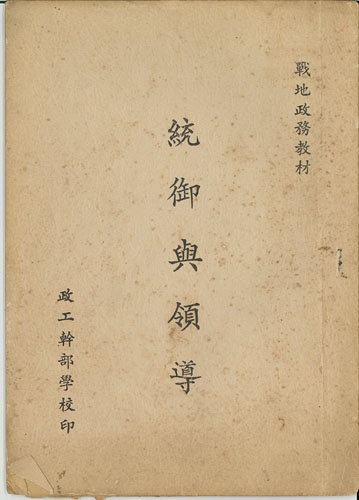 戰地政務教材
統御與領導
政工幹部學校印